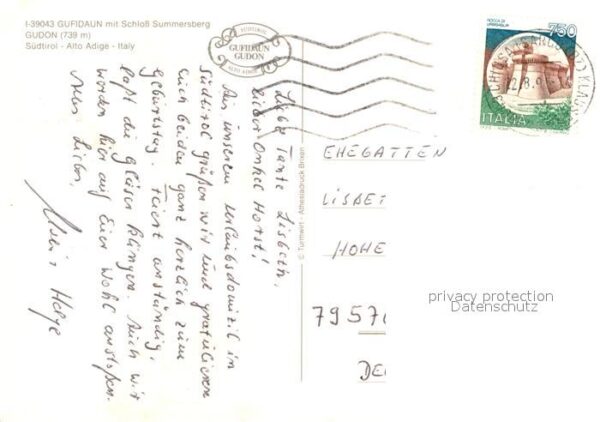 I-39043 GUFIDAUN mit Schloß Summersberg
GUDON (739 m)
Südtirol - Alto Adige - Italy
SÜDTIROL
GUFIDAUN
GUDON
ALTO ADIGE
750
ITALIA
Liebe Tante Lisbeth,
lieber Onkel Horst!
Aus unserem Urlaubsdomizil in
Südtirol grüßen wir und gratulieren
Euch beiden ganz herzlich zum
Geburtstag. Feiert anständig,
laßt die Gläser klingen. Auch wir
werden hier auf Euer Wohl anstoßen.
Alles Liebe,
Helge
© Turmwirt - Athesiadruck Brixen
EHEGATTEN
LISBET
HOHE
7957
DE
privacy protection
Datenschutz